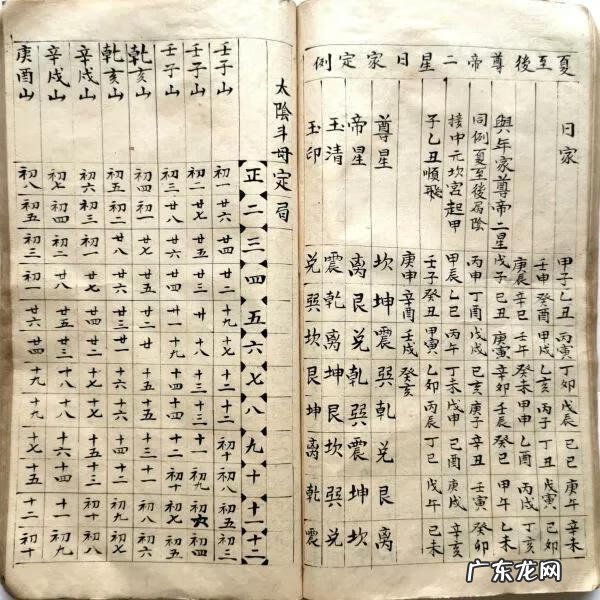 夏至後尊帝二星日家定例
日家
與年家尊帝二星
同例夏至後局陰
接中元坎宮起甲
子乙丑順飛
甲子 乙丑 丙寅 丁卯 戊辰 己巳 庚午 辛未
壬申 癸酉 甲戌 乙亥 丙子 丁丑 戊寅 己卯
庚辰 辛巳 壬午 癸未 甲申 乙酉 丙戌 丁亥
戊子 己丑 庚寅 辛卯 壬辰 癸巳 甲午 乙未
丙申 丁酉 戊戌 己亥 庚子 辛丑 壬寅 癸卯
甲辰 乙巳 丙午 丁未 戊申 己酉 庚戌 辛亥
壬子 癸丑 甲寅 乙卯 丙辰 丁巳 戊午 己未
庚申 辛酉 壬戌 癸亥
尊星 坎 坤 震 巽 乾 兌 艮 離
帝星 離 艮 兌 乾 巽 震 坤 坎
玉清 震 乾 離 坤 艮 坎 巽 兌
玉印 兌 巽 坎 艮 坤 離 乾 震
太陰斗母定局
正 二 三 四 五 六 七 八 九 十 十一 十二
壬子山 初一 廿六 廿四 廿二 十九 十七 十二 初十 初八 初五 初三
壬子山 初二 廿七 廿五 廿三 廿 十八 十三 十一 初九 初六 初四
壬子山 初三 廿八 廿六 廿一 十九 十四 十二 初十 初七 初五
乾亥山 初四 初一 廿 十五 十三 初八 初六
乾亥山 初五 初二 十六 十四 初九 初七
辛戌山 初六 初三 初一 廿七 十七 十五 初十 初八
辛戌山 初七 初四 初二 廿八 廿五 廿三 十八 十六 十四 十一 初九
庚酉山 初八 初五 初三 初一 廿六 廿四 十九 十七 十五 十二 初十
广东龙网